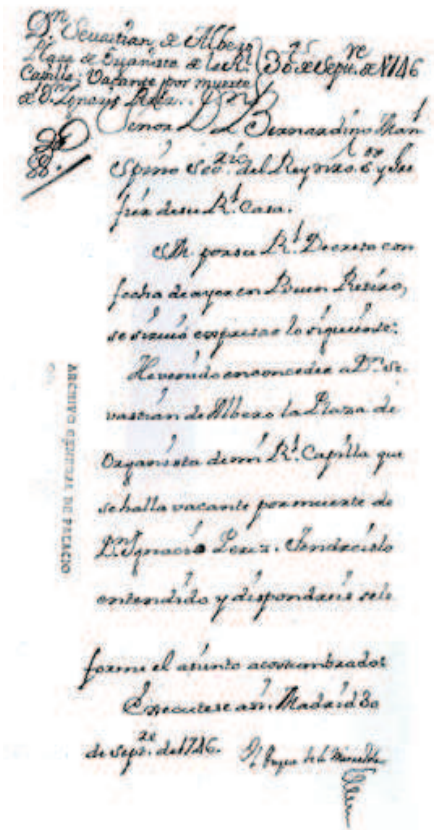 Dn. Sevastian de Albero
Plaza de Organista de la Rl.
Capilla: Vacante por muerte
de Dn. Ignacio Perez.
30 de Sepre. de 1746
Senor Dn. Bernardino Man
Spino Seo.rio del Rey nro. sr. y
su Rl. Casa.
SM. por su Rl. Decreto con
fecha de ayer en Buen Retiro,
se sirvió expresar lo siguiente:
He venido en conceder a Dn. Se
vastian de Albero la Plaza de
Organista de mi Rl. Capilla que
se halla vacante por muerte de
Dn. Ignacio Perez. Tendreislo
entendido y dispondreis se le
forme el asiento acostumbrado:
Executese asi. Madrid 30
de sepre. de 1746.
ARCHIVO GENERAL DE PALACIO